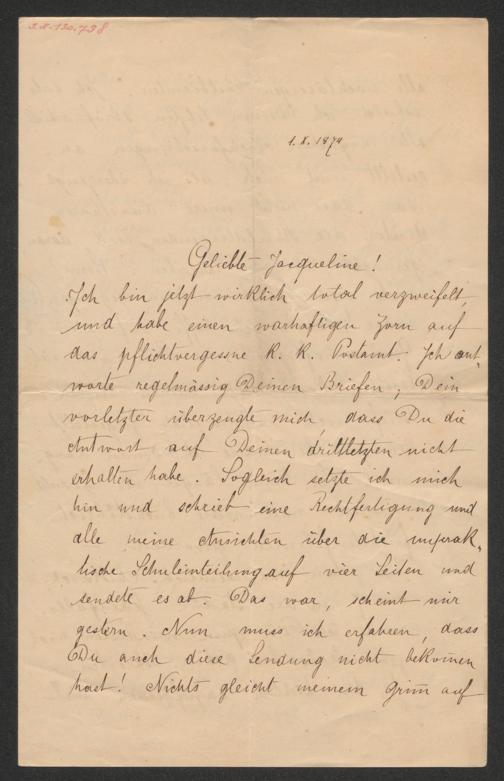 I.N. 120.798
1. X. 1874
Geliebte Jacqueline!
Ich bin jetzt wirklich total verzweifelt,
und habe einen warhaftigen Zorn auf
das pflichtvergessne K. K. Postamt. Ich ant„
worte regelmässig Deinen Briefen; Dein
vorletzter überzeugte mich, dass Du die
Antwort auf Deinen drittletzten nicht
erhalten habe. Sogleich setzte ich mich
hin und schrieb eine Rechtfertigung und
alle meine Ansichten über die unprak„
tische Schuleinteilung auf vier Seiten und
sendete es ab. Das war, scheint mir
gestern. Nun muss ich erfahren, dass
Du auch diese Sendung nicht bekom̄en
hast! Nichts gleicht meinem Grim̄ auf